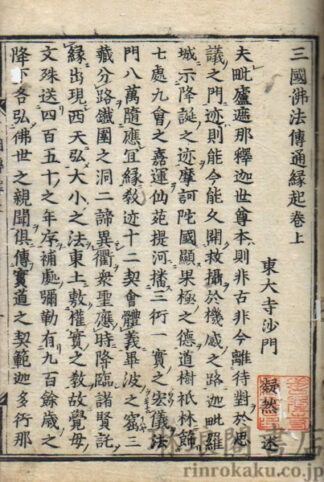 三國佛法傳通縁起卷上
東大寺沙門 凝然 述
夫毗盧遮那釋迦世尊本則非古非今離待對於思
議之門迹則能今能久開救攝於機感之路迦毗羅
城示降誕之迹摩訶陀國顯果極之德道樹祇林飾
七處九會之嘉運仙苑提河播三一實之宏儀法
門八萬隨應宜縁教迹十二契會體義畢波之窟三
藏分路鐵圍之洞二諦異衢衆聖應時降臨諸賢託
縁出現西天弘大小之法東土敷權實之教故覺母
文殊送四百五十之年序補處彌勒有九百餘歳之
降下各弘佛世之親聞俱傳實道之契範迦多衍那
rinrokaku.co.jp